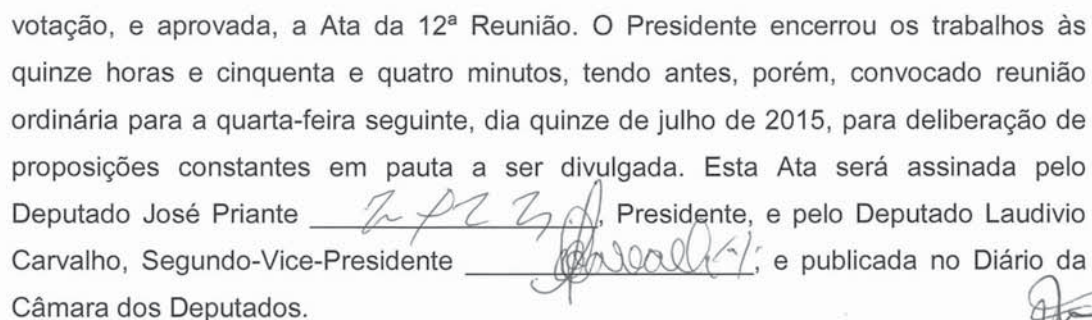 votação, e aprovada, a Ata da 12ª Reunião. O Presidente encerrou os trabalhos às
quinze horas e cinquenta e quatro minutos, tendo antes, porém, convocado reunião
ordinária para a quarta-feira seguinte, dia quinze de julho de 2015, para deliberação de
proposições constantes em pauta a ser divulgada. Esta Ata será assinada pelo
Deputado José Priante , Presidente, e pelo Deputado Laudivio
Carvalho, Segundo-Vice-Presidente ; e publicada no Diário da
Câmara dos Deputados.